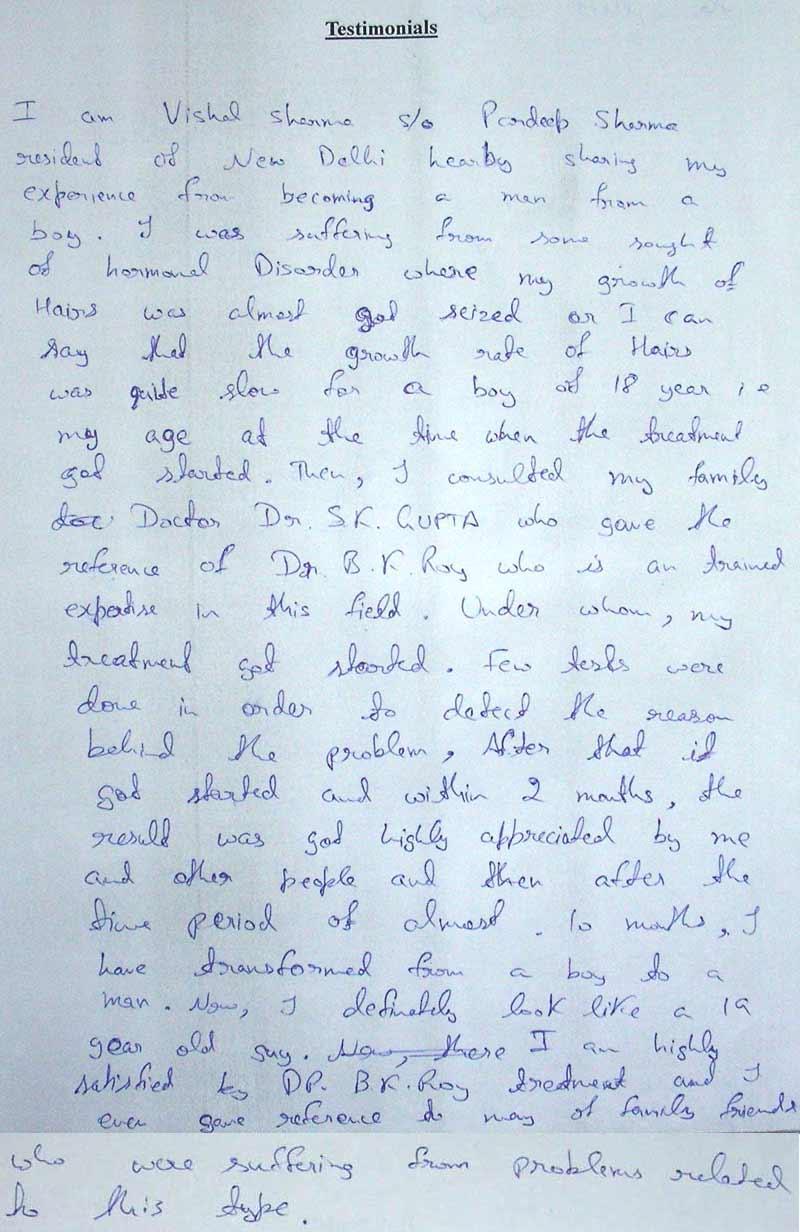 Testimonials
I am Vishal Sharma s/o Pardeep Sharma
resident of New Delhi hearby sharing my
experience from becoming a man from a
boy. I was suffering from some sought
of hormonal Disorder where my growth of
Hairs was almost got seized or I can
say that the growth rate of Hairs
was quite slow for a boy of 18 year i.e
my age at the time when the treatment
got started. Then, I consulted my family
Doctor Dr. S.K. GUPTA who gave the
reference of Dr. B.K. Roy who is an trained
expertise in this field. Under whom, my
treatment got started. Few tests were
done in order to detect the reason
behind the problem, After that it
got started and within 2 months, the
result was got highly appreciated by me
and other people and then after the
time period of almost 10 months, I
have transformed from a boy to a
man. Now, I definately look like a 19
year old guy. Now, there I am highly
satisfied by DR. B.K. Roy treatment and I
even gave reference to may of family friends
who were suffering from problems related
to this type.